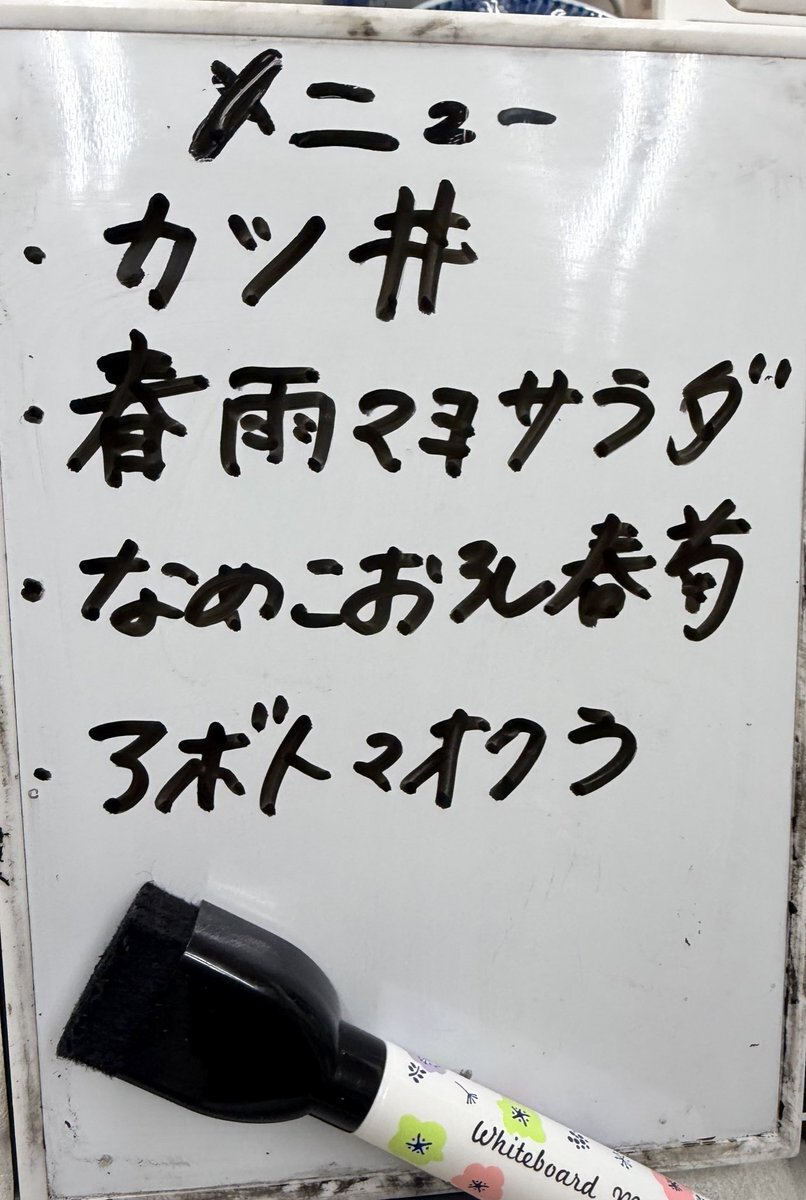 メニュー
・カツ丼
・春雨マヨサラダ
・なめこおろし春菊
・アボトマオクラ
Whiteboard